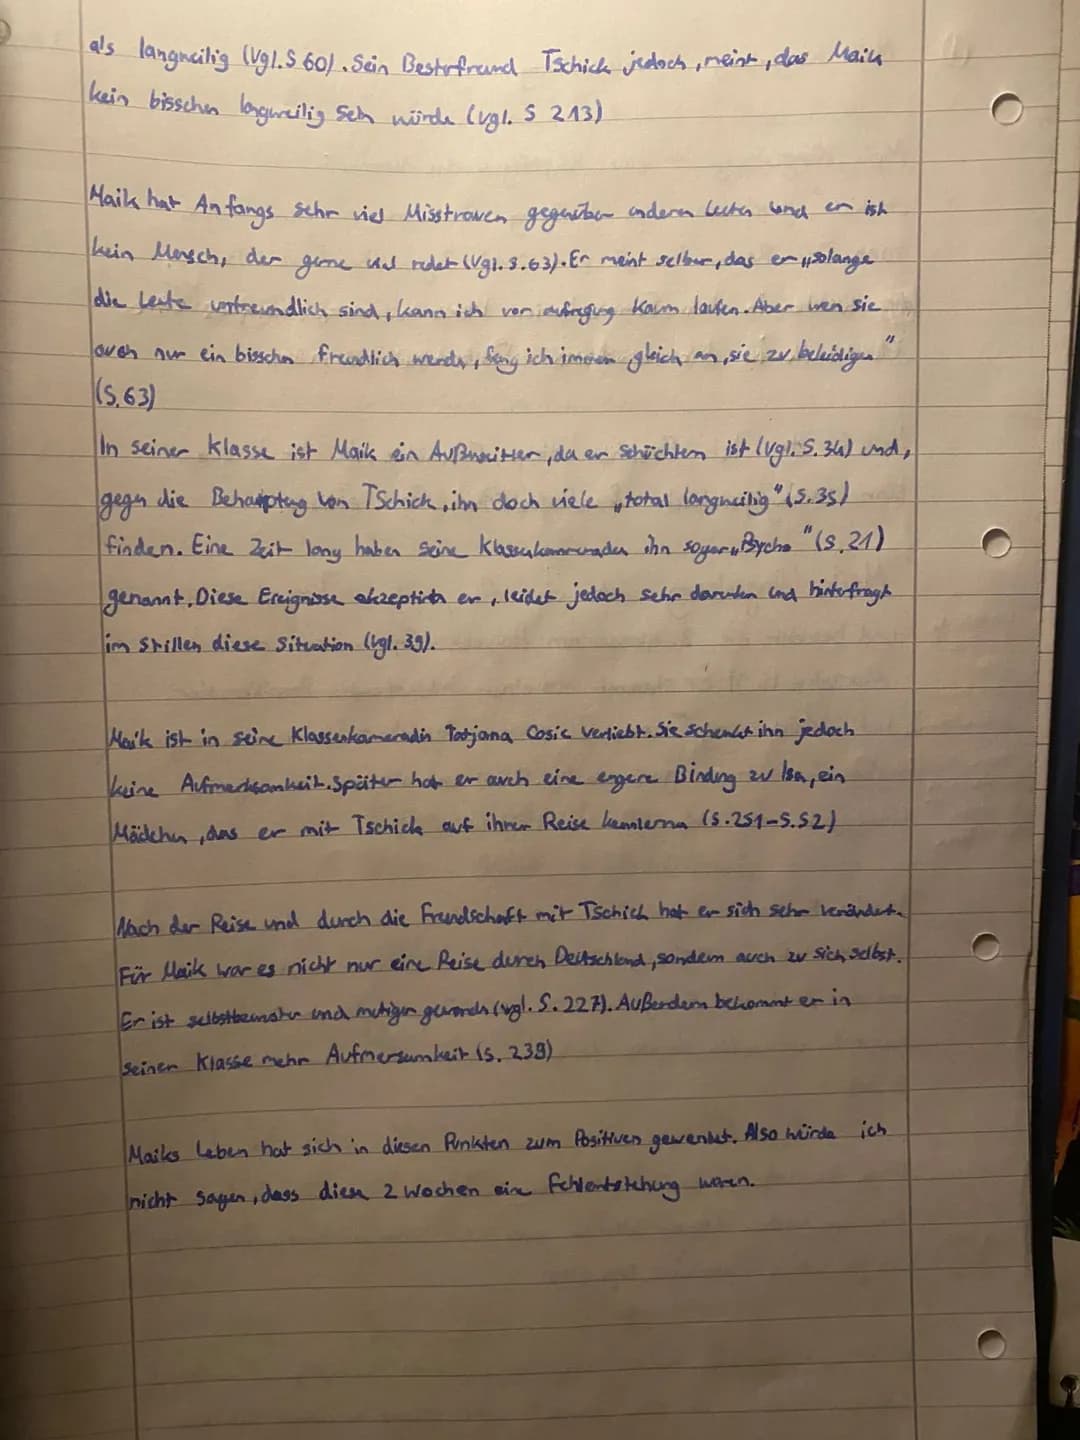 als langweilig (Vgl. S 60). Sein Bestefreund Tschick jedoch, meint, das Maik
kein bisschen langweilig sein würde (vgl. S 213)
Maik hat Anfangs sehr viel Misstrauen gegenüber anderen Leuten und er ist
kein Mensch, der gerne viel redet (Vgl. S.63). Er meint selber, das er „solange
die Leute unfreundlich sind, kann ich vor aufregung kaum laufen. Aber wen sie
auch nur ein bisschen freundlich werden, fang ich immer gleich an, sie zu beleidigen"
(S.63)
In seiner Klasse ist Maik ein Außenseiter, da er schüchtern ist (vgl. S. 34) und,
gegen die Behauptung von Tschick, ihn doch viele „total langweilig" (S.35)
finden. Eine Zeit lang haben seine Klassenkameraden ihn sogar „Psycho" (S.21)
genannt. Diese Ereignisse akzeptiert er, leidet jedoch sehr darunter und hinterfragt
im Stillen diese Situation (Vgl. 39).
Maik ist in seine Klassenkameradin Tatjana Cosic verliebt. Sie schenkt ihn jedoch
keine Aufmerksamkeit. Später hat er auch eine engere Bindung zu Isa, ein
Mädchen, das er mit Tschick auf ihrer Reise kennlerna (S.251-S.52)
Nach der Reise und durch die Freundschaft mit Tschick hat er sich sehr verändert.
Für Maik war es nicht nur eine Reise durch Deutschland, sondern auch zu sich selbst.
Er ist selbstbewuster und mutiger geworden (vgl. S. 227). Außerdem bekommt er in
seiner Klasse mehr Aufmersamkeit (S. 239)
Maiks Leben hat sich in diesen Punkten zum Positiven gewendet. Also würde ich
nicht sagen, dass diese 2 Wochen eine Fehlentstehung waren.